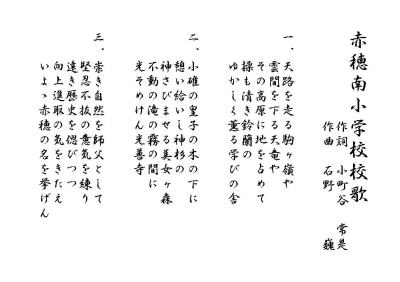 赤穂南小学校校歌
作詞 小町谷 常是
作曲 石野 巍
一、天路を走る駒ヶ嶺や
雲間を下る天竜や
その高原に地を占めて
操も清き鈴蘭の
ゆかしく薫る学びの舎
二、小碓の皇子の木の下に
憩い給いし神杉の
神さびませる美女ヶ森
不動の滝の霧の間に
光そめけん光善寺
三、崇き自然を師父として
堅忍不抜の意気を練り
遠き歴史を偲びつつ
向上進取の気をきたえ
いよゝ赤穂の名を挙げん